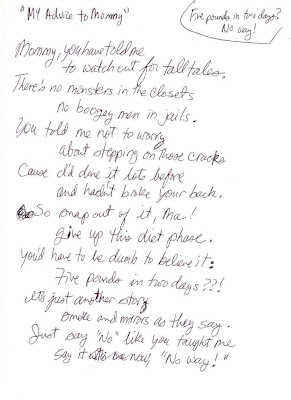 "MY Advice to Mommy"
Five pounds in two days?
No way!
Mommy, you have told me
to watch out for tall tales.
There's no monsters in the closets
no boogey men in jails.
You told me not to worry
about stepping on those cracks
Cause I'd done it lots before
and hadn't broke your back.
So snap out of it, Ma!
give up this diet phase.
You'd have to be dumb to believe it:
Five pounds in two days??!
It's just another story
smoke and mirrors as they say.
Just say "No" like you taught me
Say it now, "No way!"